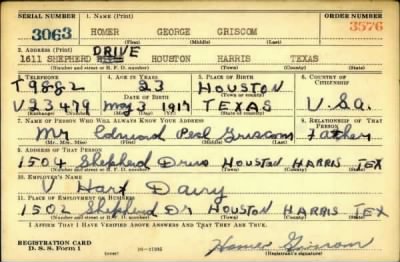 SERIAL NUMBER 1. NAME (Print) ORDER NUMBER
3063 HOMER GEORGE GRISCOM 3576
(First) (Middle) (Last)
2. ADDRESS (Print) DRIVE
1611 SHEPHERD HOUSTON HARRIS TEXAS
(Number and street or R. F. D. number) (Town) (County) (State)
3. TELEPHONE 4. AGE IN YEARS 5. PLACE OF BIRTH 6. COUNTRY OF CITIZENSHIP
T9882 23 HOUSTON
DATE OF BIRTH (Town or county)
V23479 May 3 1917 TEXAS U.S.a.
(Exchange) (Number) (Mo.) (Day) (Yr.) (State or country)
7. NAME OF PERSON WHO WILL ALWAYS KNOW YOUR ADDRESS 8. RELATIONSHIP OF THAT PERSON
Mr Edmund Griscom Father
(Mr., Mrs., Miss) (First) (Middle) (Last)
9. ADDRESS OF THAT PERSON
1504 Shepherd Drive HOUSTON HARRIS TEX
(Number and street or R. F. D. number) (Town) (County) (State)
10. EMPLOYER'S NAME
V Hart Dairy
11. PLACE OF EMPLOYMENT OR BUSINESS
1502 Shepherd Dr HOUSTON HARRIS TEX
(Number and street or R. F. D. number) (Town) (County) (State)
I AFFIRM THAT I HAVE VERIFIED ABOVE ANSWERS AND THAT THEY ARE TRUE.
REGISTRATION CARD
D. S. S. Form 1 Homer Griscom
(over) (Registrant's signature)